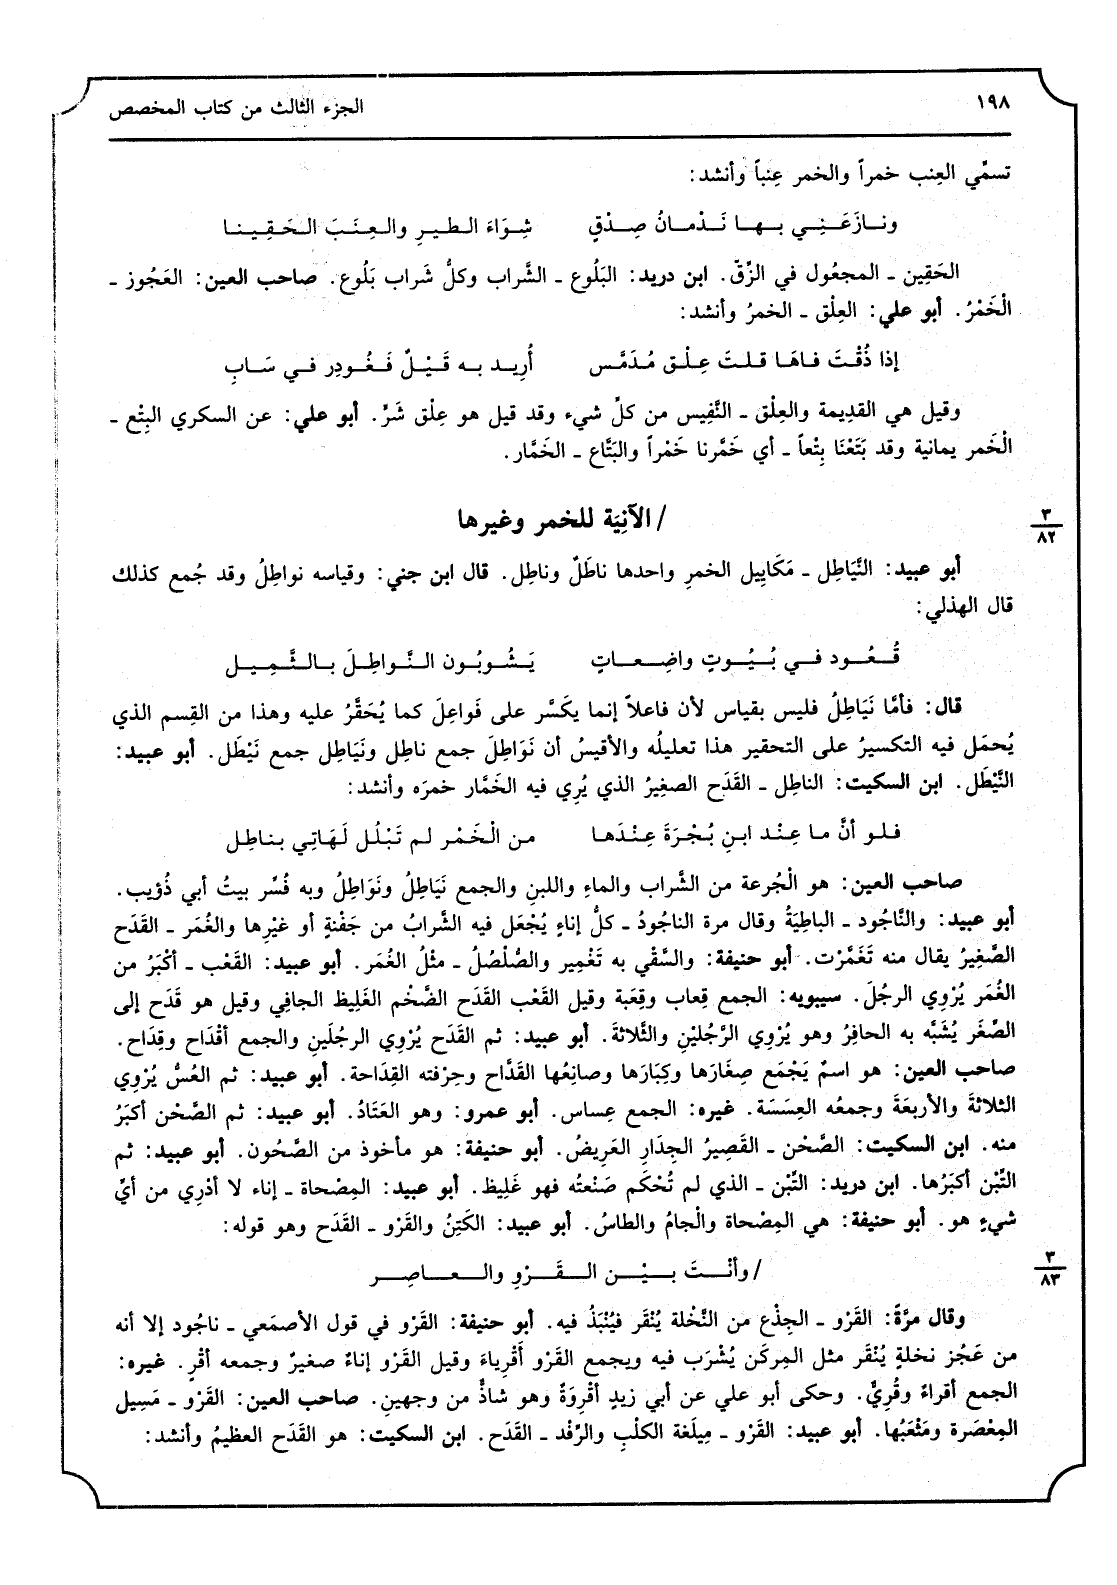 ١٩٨
الجزء الثالث من كتاب المخصص
تسمِّي العِنب خمراً والخمر عِنباً وأنشد:
ونازَعَنِي بها نَدْمانُ صِدْقٍ شِوَاءَ الطيرِ والعِنَبَ الحَقِينا
الحَقِين ـ المجعُول في الزِّقّ. ابن دريد: البَلُوع ـ الشَّراب وكلُّ شَراب بَلُوع. صاحب العين: العَجُوز ـ
الْخَمْرُ. أبو علي: العِلْق ـ الخمرُ وأنشد:
إذا ذُقْتَ فاهَا قلتَ عِلْق مُدَمَّس أُرِيد به قَيْلٌ فَغُودِر في سَابِ
وقيل هي القدِيمة والعِلْق ـ النَّفِيس من كلِّ شيء وقد قيل هو عِلْق شَرِّ. أبو علي: عن السكري البِتْع ـ
الْخَمر يمانية وقد بَتَعْنَا بِتْعاً ـ أي خَمَّرنا خَمْراً والبَتَّاع ـ الخَمَّار.
٣
٨٢
/ الآنِيَة للخمر وغيرها
أبو عبيد: النَّيَاطِل ـ مَكَايِيل الخمرِ واحدها ناطَلٌ وناطِل. قال ابن جني: وقياسه نواطِلُ وقد جُمع كذلك
قال الهذلي:
قُعُود في بُيُوتٍ واضِعاتٍ يَشُوبُون النَّواطِلَ بالثَّمِيل
قال: فأمَّا نَيَاطِلُ فليس بقياس لأن فاعلاً إنما يكَسَّر على فَواعِلَ كما يُحَقَّرُ عليه وهذا من القِسم الذي
يُحمَل فيه التكسيرُ على التحقير هذا تعليلُه والأقيسُ أن نَوَاطِلَ جمع ناطِل ونَيَاطِل جمع نَيْطَل. أبو عبيد:
النَّيْطَل. ابن السكيت: الناطِل ـ القَدَح الصغيرُ الذي يُرِي فيه الخَمَّار خمرَه وأنشد:
فلو أنَّ ما عِنْد ابنِ بُجْرَةَ عِنْدَها من الْخَمْر لم تَبْلُل لَهَاتِي بناطِل
صاحب العين: هو الْجُرعة من الشَّراب والماءِ واللبنِ والجمع نَيَاطِلُ ونَوَاطِلُ وبه فُسِّر بيتُ أبي ذُؤيب.
أبو عبيد: والنَّاجُود ـ الباطِيَةُ وقال مرة الناجُودُ ـ كلُّ إناءٍ يُجْعَل فيه الشَّرابُ من جَفْنةٍ أو غيْرِها والغُمَر ـ القَدَح
الصَّغِيرُ يقال منه تَغَمَّرْت. أبو حنيفة: والسَّقْي به تَغْمِير والصُّلْصُلُ ـ مثْلُ الغُمَر. أبو عبيد: القَعْب ـ أكْبَرُ من
الغُمَر يُرْوِي الرجُلَ. سيبويه: الجمع قِعاب وقِعَبة وقيل القَعْب القَدَح الضَّخْم الغَلِيظ الجافِي وقيل هو قَدَح إلى
الصِّغَر يُشَبَّه به الحافِرُ وهو يُرْوِي الرَّجُليْنِ والثَّلاثةَ. أبو عبيد: ثم القَدَح يُرْوِي الرجُلَينِ والجمع أقْدَاح وقِدَاح.
صاحب العين: هو اسمٌ يَجْمَع صِغَارَها وكِبَارَها وصانِعُها القَدَّاح وحِرْفته القِدَاحة. أبو عبيد: ثم العُسُّ يُرْوِي
الثلاثةَ والأربعَةَ وجمعُه العِسَسَة. غيره: الجمع عِساس. أبو عمرو: وهو العَتَادُ. أبو عبيد: ثم الصَّحْن أكبَرُ
منه. ابن السكيت: الصَّحْن ـ القَصِيرُ الجِدَارِ العَرِيضُ. أبو حنيفة: هو مأخوذ من الصَّحُون. أبو عبيد: ثم
التِّبْن أكبَرُها. ابن دريد: التِّبْن ـ الذي لم تُحْكَم صَنْعتُه فهو غَلِيظ. أبو عبيد: المِصْحاة ـ إناء لا أدْرِي من أيِّ
شيءٍ هو. أبو حنيفة: هي المِصْحاة والْجامُ والطاسُ. أبو عبيد: الكَتِنُ والقَرْو ـ القَدَح وهو قوله:
٣
٨٣
/ وأنْتَ بيْن القَرْوِ والعاصِر
وقال مرَّةً: القَرْو ـ الجِذْع من النَّخْلة يُنْقَر فيُنْبَذُ فيه. أبو حنيفة: القَرْو في قول الأصمَعي ـ ناجُود إلا أنه
من عَجُز نخلةٍ يُنْقَر مثل المِركَن يُشْرَب فيه ويجمع القَرْو أَقْرِياءَ وقيل القَرْو إناءٌ صغيرٌ وجمعه أقْرٍ. غيره:
الجمع أقراءٌ وقُرِيٌّ. وحكى أبو علي عن أبي زيدٍ أقْرِوَةٌ وهو شاذٌّ من وجهين. صاحب العين: القَرْو ـ مَسِيل
المِعْصَرة ومَثْعَبُها. أبو عبيد: القَرْو ـ مِيلَغة الكلْبِ والرِّفْد ـ القَدَح. ابن السكيت: هو القَدَح العظيمُ وأنشد: